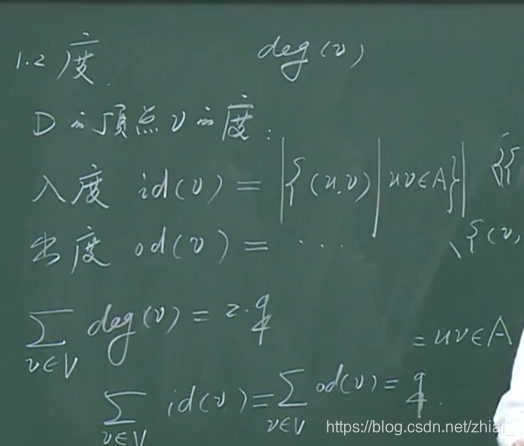 1.2 度. deg(v)
D的顶点v的度:
入度 id(v) = |{(u,v)|uv∈A}| {{
出度 od(v) = ... \{(v,
∑ deg(v) = 2·q
v∈V
= uv∈A
∑ id(v) = ∑ od(v) = q.
v∈V v∈V
https://blog.csdn.net/zhial